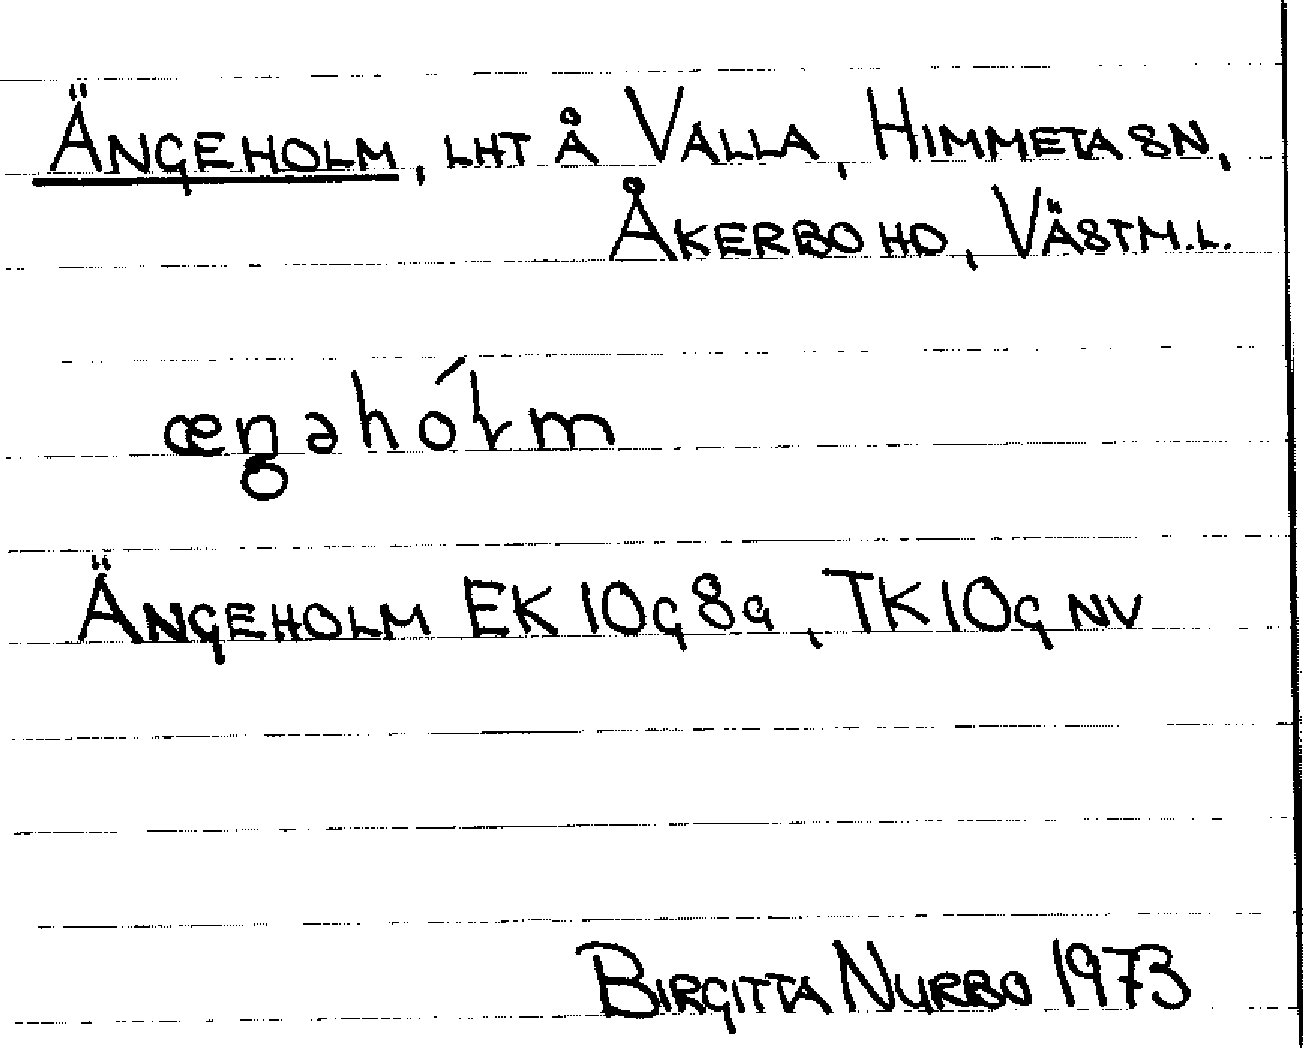 ÄNGEHOLM, LHT Å VALLA, HIMMETA SN,
ÅKERBO HD, VÄSTM.L.
æŋəhólm
ÄNGEHOLM EK 10G8a, TK 10G NV
BIRGITTA NURBO 1973